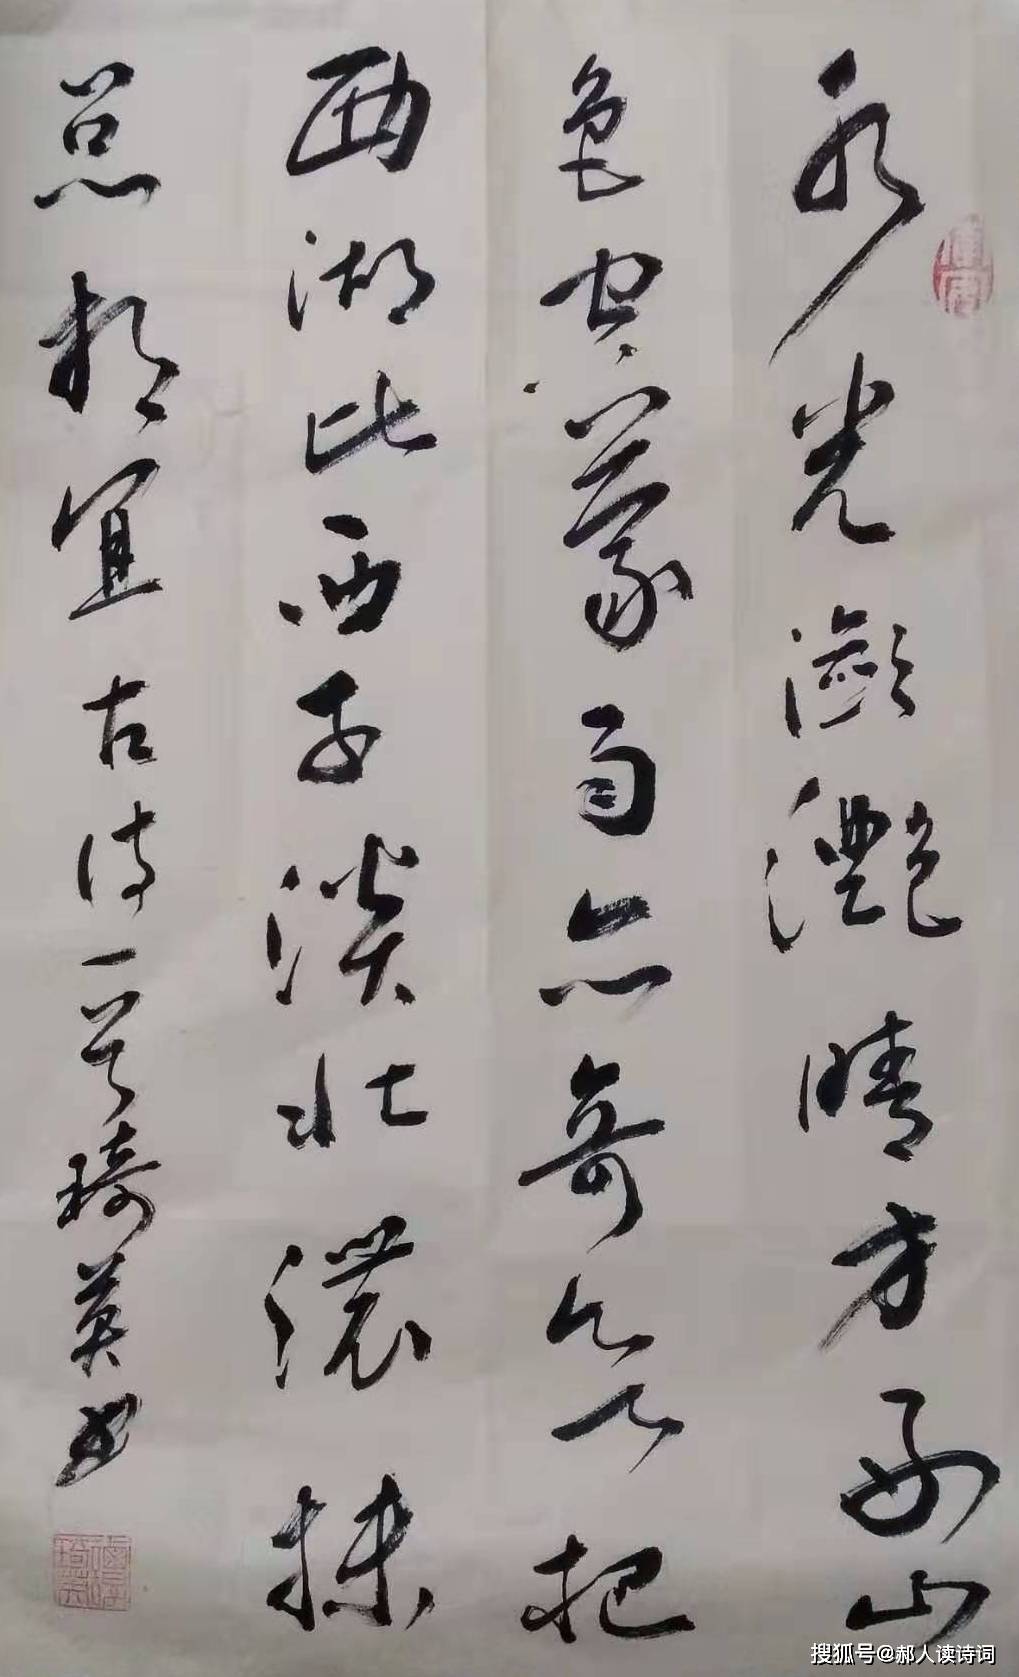 水光潋灧晴方好山
色空蒙雨亦奇欲把
西湖比西子淡妆濃抹
总相宜古诗一首琦英书
搜狐号@郝人读诗词